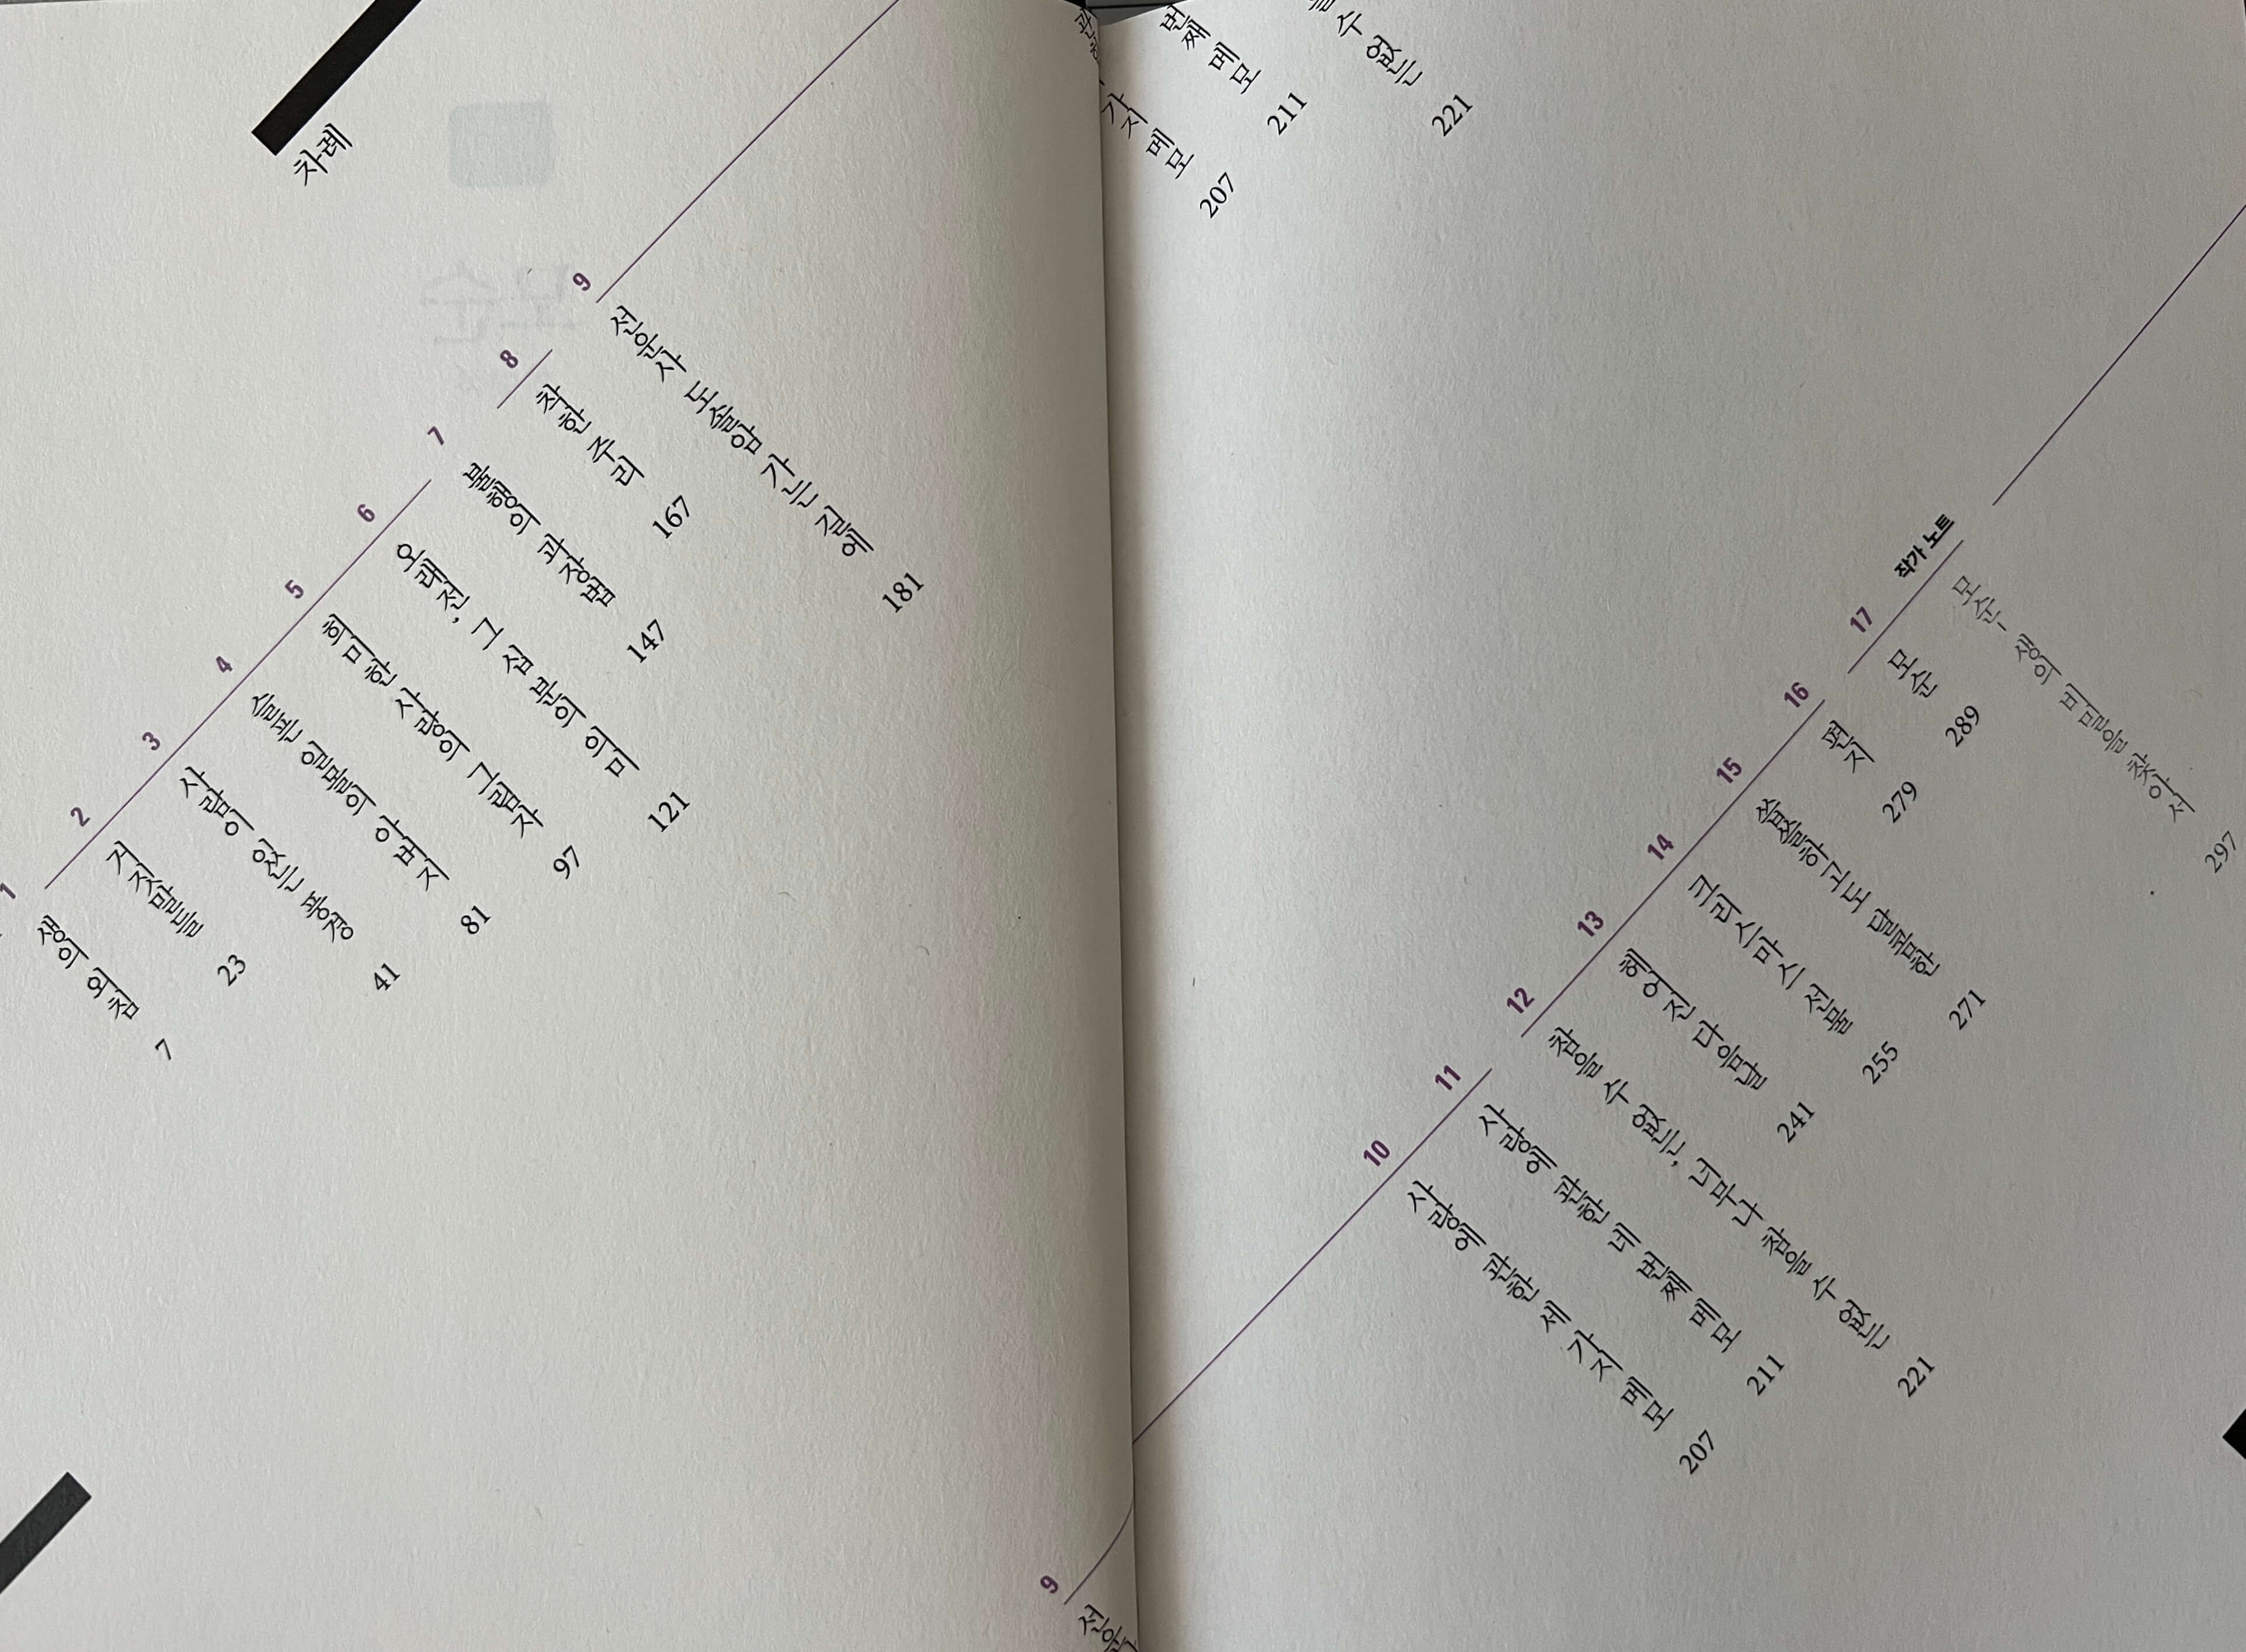 차례
1
생의 외침
7
2
거짓말들
23
3
사람이 있는 풍경
41
4
슬픈 일몰의 아버지
81
5
희미한 사랑의 그림자
97
6
오래전, 그 십 분의 의미
121
7
불행의 과장법
147
8
착한 주리
167
9
선운사 도솔암 가는 길에
181
번째 메모
211
수 없는
221
가지 메모
207
9
선운
10
사랑에 관한 세 가지 메모
207
11
사랑에 관한 네 번째 메모
211
12
참을 수 없는, 너무나 참을 수 없는
221
13
헤어진 다음날
241
14
크리스마스 선물
255
15
씁쓸하고도 달콤한
271
16
편지
279
17
모순
289
작가 노트
모순, 생의 비밀을 찾아서
297